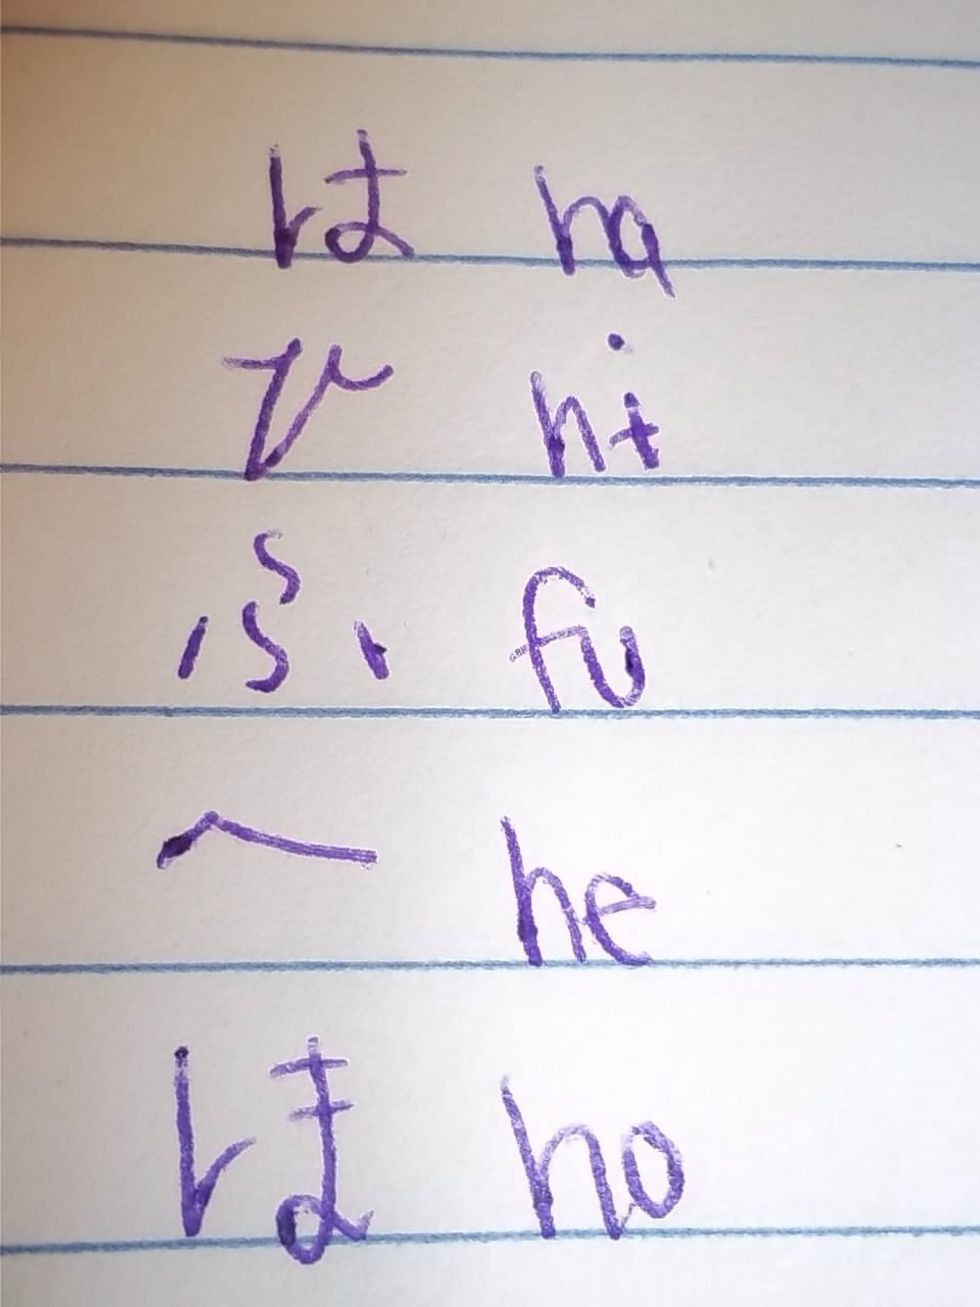 は ha
ひ hi
ふ fu
へ he
ほ ho